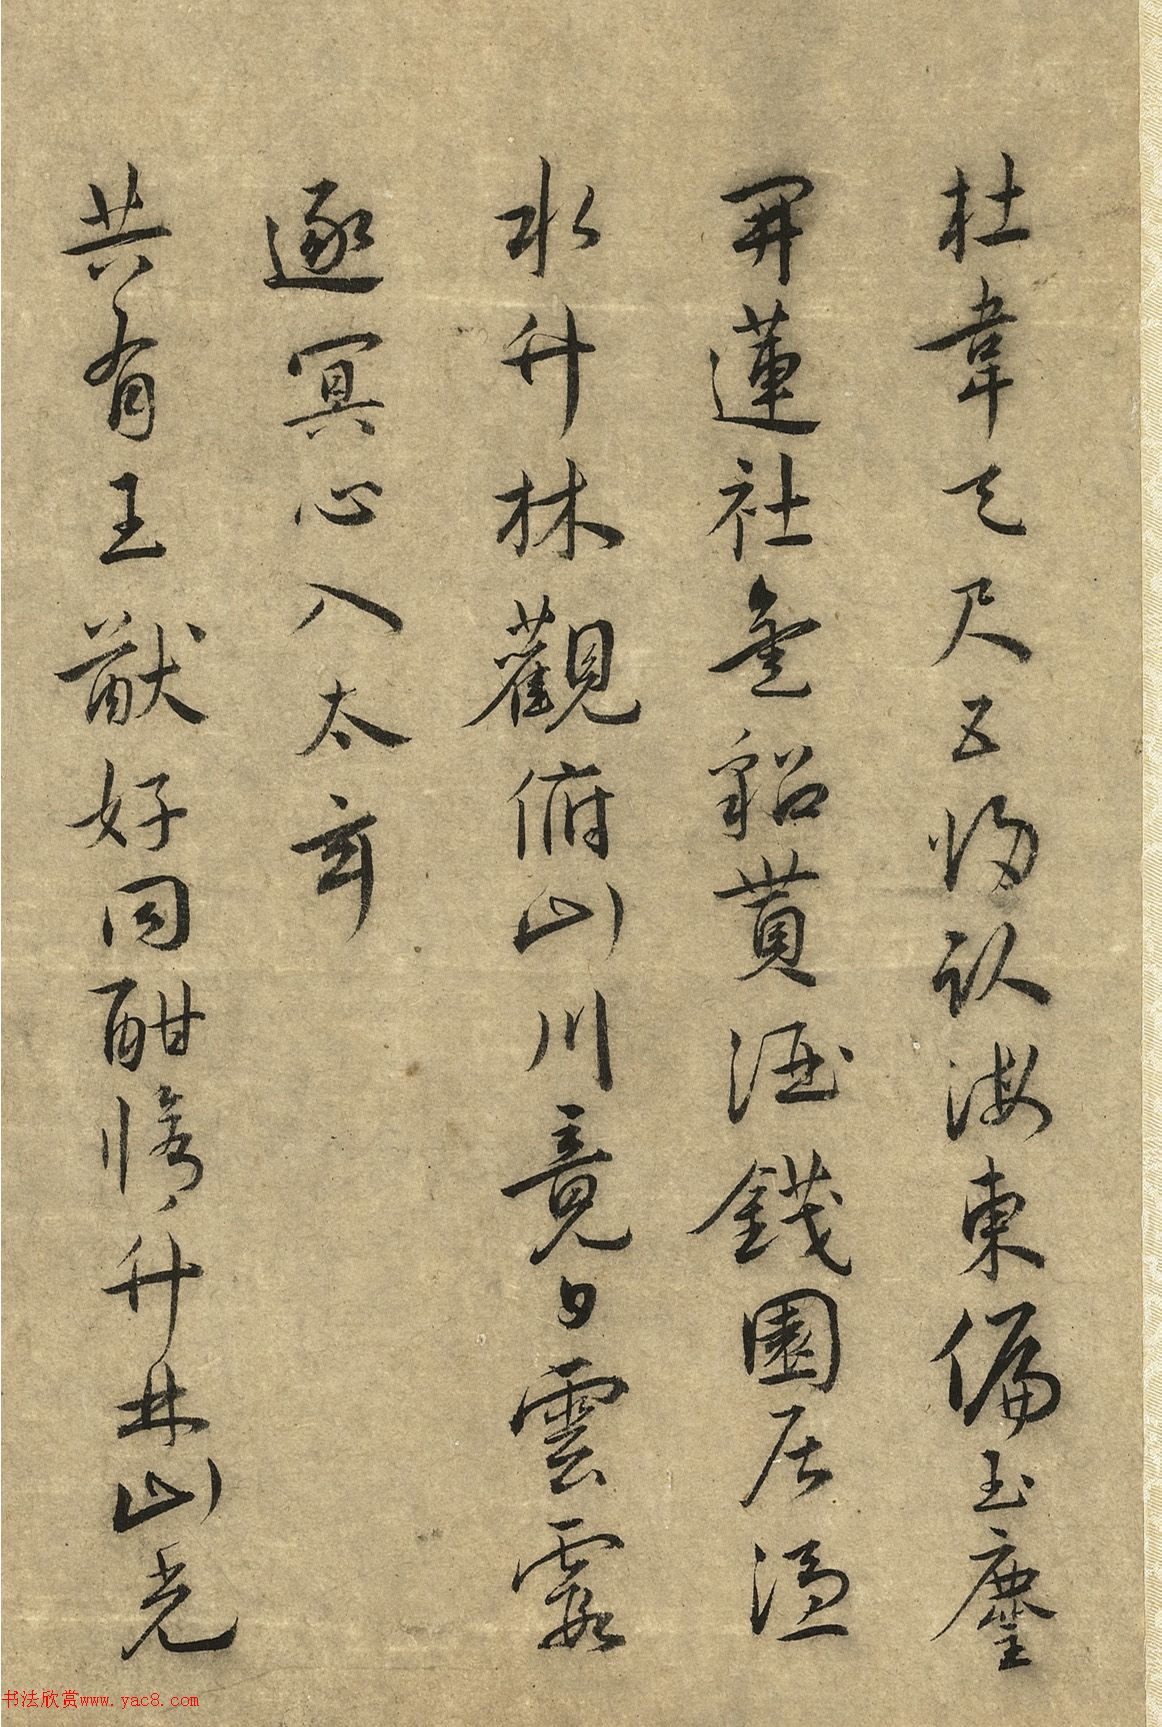 杜韋天尺五歸臥海東偏玉麈
開蓮社金貂貰酒錢園居憑
水竹林觀俯山川竟日雲霞
逐冥心入太玄
共有王猷好同酣脩竹林山光
书法欣赏www.yac8.com